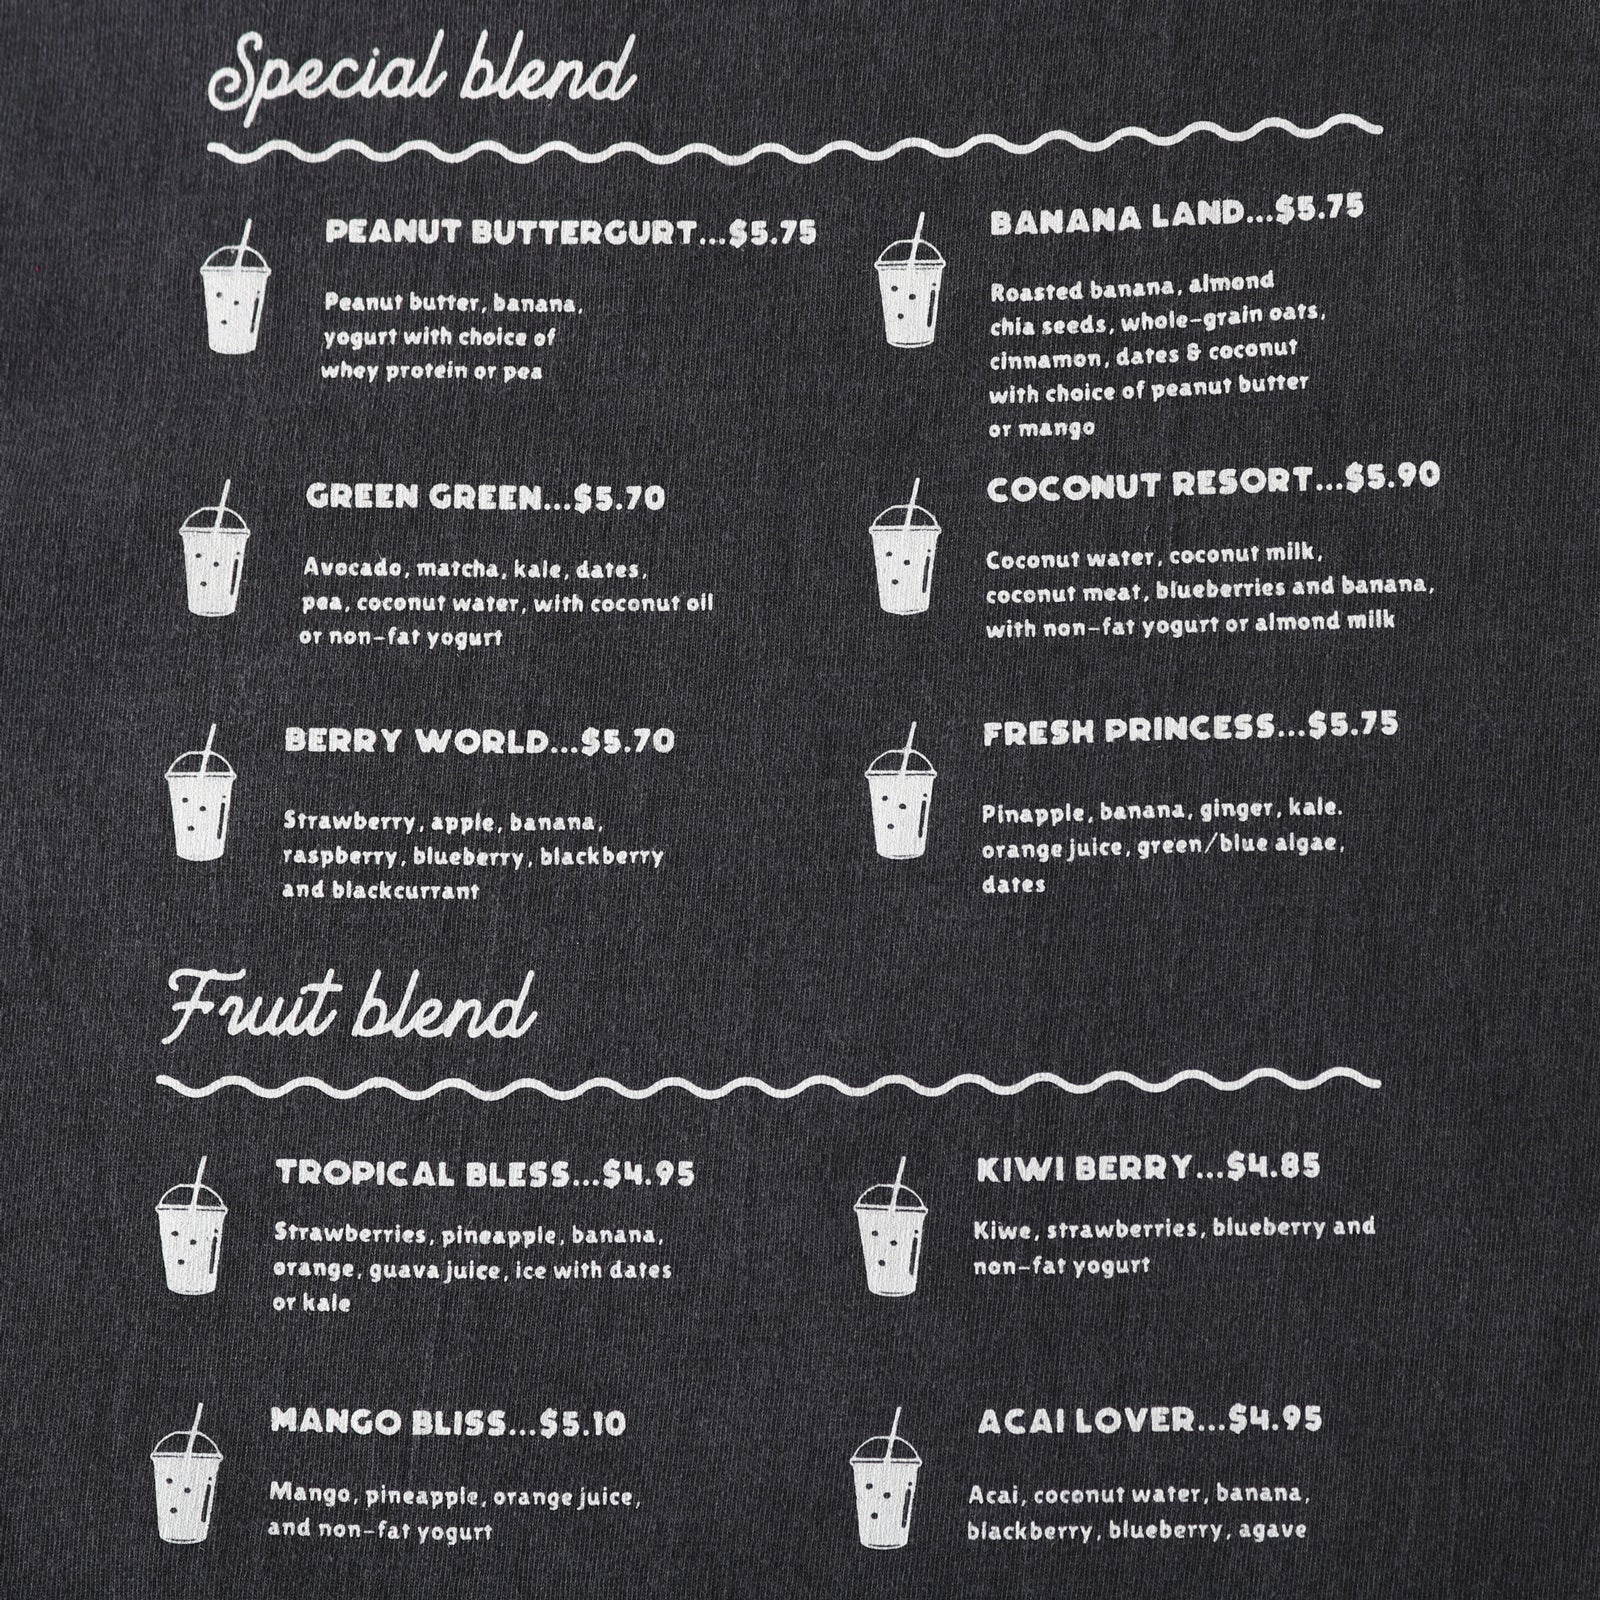 Special blend
PEANUT BUTTERGURT...$5.75
Peanut butter, banana,
yogurt with choice of
whey protein or pea
BANANA LAND...$5.75
Roasted banana, almond
chia seeds, whole-grain oats,
cinnamon, dates & coconut
with choice of peanut butter
or mango
GREEN GREEN...$5.70
Avocado, matcha, kale, dates,
pea, coconut water, with coconut oil
or non-fat yogurt
COCONUT RESORT...$5.90
Coconut water, coconut milk,
coconut meat, blueberries and banana,
with non-fat yogurt or almond milk
BERRY WORLD...$5.70
Strawberry, apple, banana,
raspberry, blueberry, blackberry
and blackcurrant
FRESH PRINCESS...$5.75
Pinapple, banana, ginger, kale.
orange juice, green/blue algae,
dates
Fruit blend
TROPICAL BLESS...$4.95
Strawberries, pineapple, banana,
orange, guava juice, ice with dates
or kale
KIWI BERRY...$4.85
Kiwe, strawberries, blueberry and
non-fat yogurt
MANGO BLISS...$5.10
Mango, pineapple, orange juice,
and non-fat yogurt
ACAI LOVER...$4.95
Acai, coconut water, banana,
blackberry, blueberry, agave